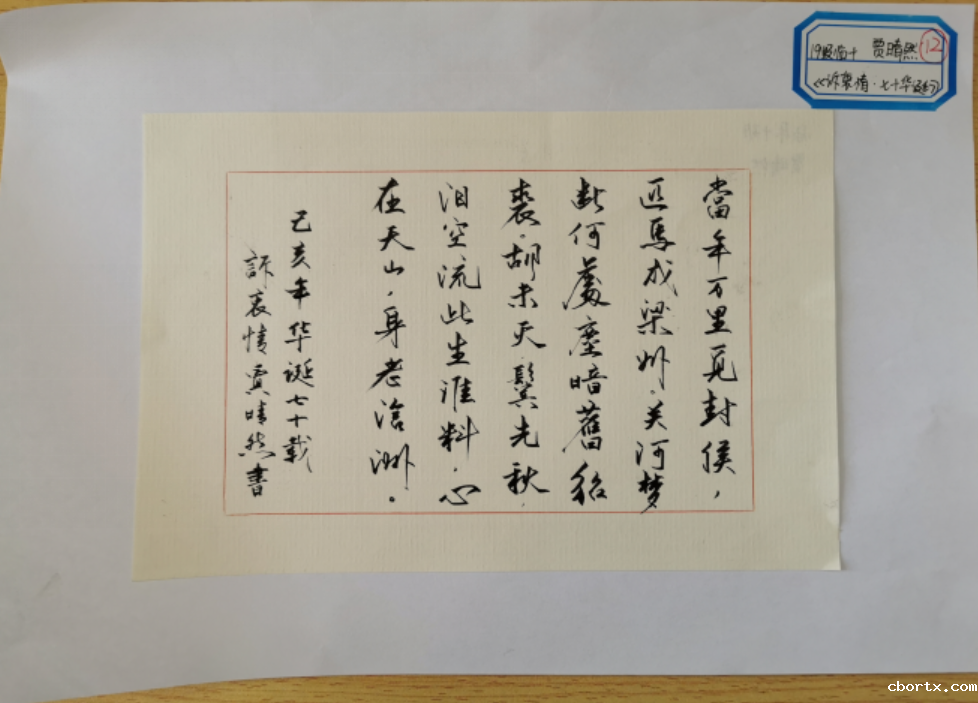 當年万里覓封侯，
匹馬戍梁州。关河梦
断何處塵暗舊貂
裘。胡未灭鬓先秋，
泪空流此生谁料，心
在天山，身老滄洲。
己亥年华诞七十载
訴衷情贾晴然書
19级临十 贾晴然 12
《诉衷情·七十华诞》
cbortx.com